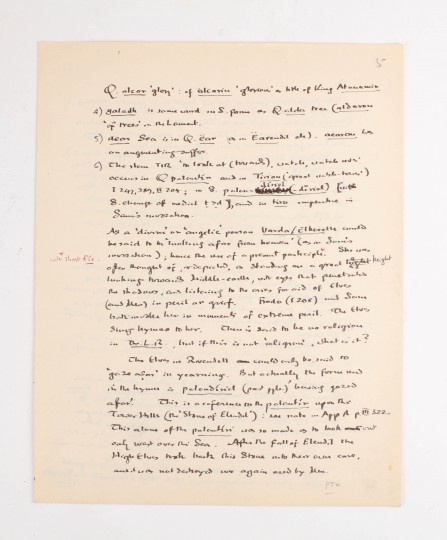 5
Q. alcar 'glory': cf alcarin 'glorious' as title of King Atanamir
4) galadh is same word in S. form as Q alda tree (aldaron
'of trees' in the Lament.
5) aear Sea is in Q. ëar (as in Eärendil etc). aearon has
an augmenting suffix.
6) The stem TIR 'to look at (towards), watch, watch over'
occurs in Q palantír and in Tirion (great watch-tower)
I 247, 389, II 204; in S. palan-díriel (-díriel) (with
S. change of medial t > d), and in tiro imperative in
Sam's invocation.
As a 'divine' or 'angelic' person Varda/Elbereth could
be said to be 'looking afar from heaven' (as in Sam's
invocation); hence the use of a present participle. She was
often thought of, or depicted, as standing on a great height
looking towards Middle-earth, with eyes that penetrated
the shadows, and listening to the cries for aid of Elves
(and Men) in peril or grief. Frodo (I 208) and Sam
both invoke her in moments of extreme peril. The Elves
sing hymns to her. There is said to be no religion
in The L.R. but if this is not 'religion', what is it?
The Elves in Rivendell could only be said to
'gaze afar' in yearning. But actually the form used
in the hymn is palandíriel (past pple) 'having gazed
afar'. This is a reference to the palantír upon the
Tower Hills (the 'Stone of Elendil'): see note in App A p. III 322.
This alone of the palantíri was so made as to look out
only west over the Sea. After the fall of Elendil the
High-Elves took back this Stone into their own care,
and it was not destroyed nor again used by Men.
PTO